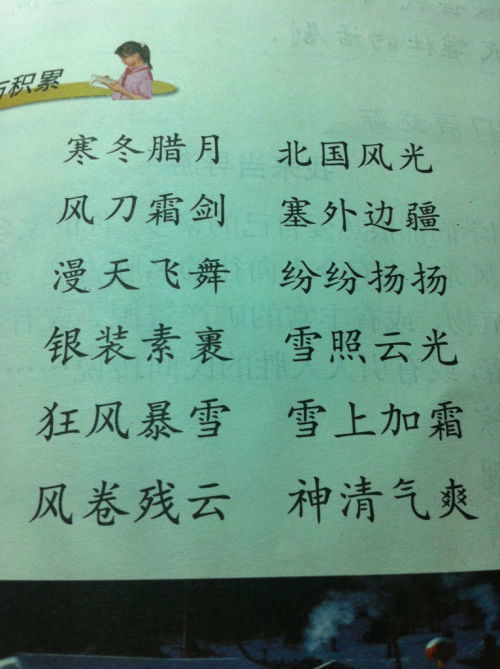 积累
寒冬腊月 北国风光
风刀霜剑 塞外边疆
漫天飞舞 纷纷扬扬
银装素裹 雪照云光
狂风暴雪 雪上加霜
风卷残云 神清气爽